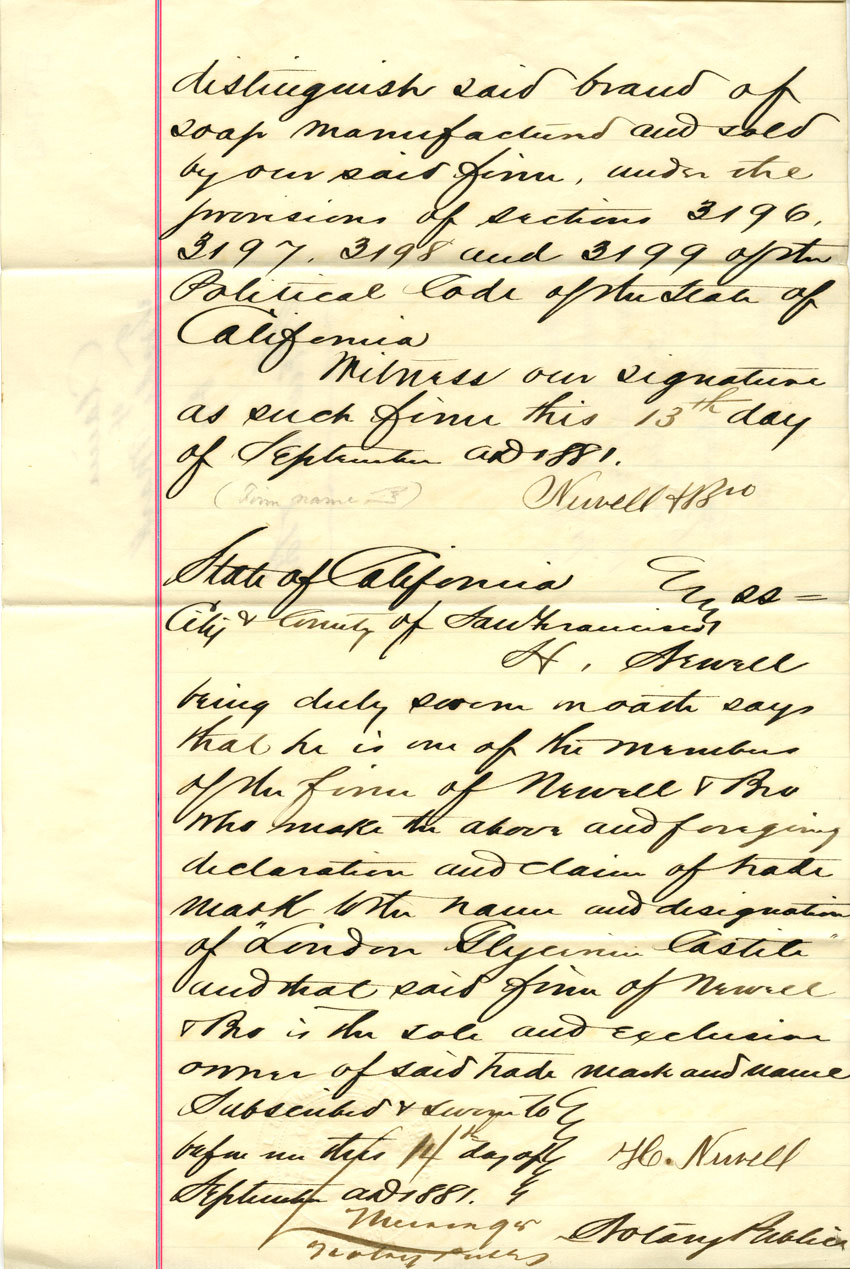 distinguish said brand of
soap manufactured and sold
by our said firm, under the
provisions of sections 3196,
3197, 3198 and 3199 of the
Political Code of the State of
California
Witness our signature
as such firm this 13th day
of September AD 1881.
(Firm name
Newell & Bro
State of California
ss
City & County of San Francisco
H. Newell
being duly sworn on oath says
that he is one of the members
of the firm of Newell & Bro
who make the above and foregoing
declaration and claim of trade
mark to the name and designation
of "London Glycerine Castile"
and that said firm of Newell
& Bro is the sole and exclusive
owner of said trade mark and name
Subscribed & sworn to
before me this 14th day of
H. Newell
September AD 1881.
Notary Public